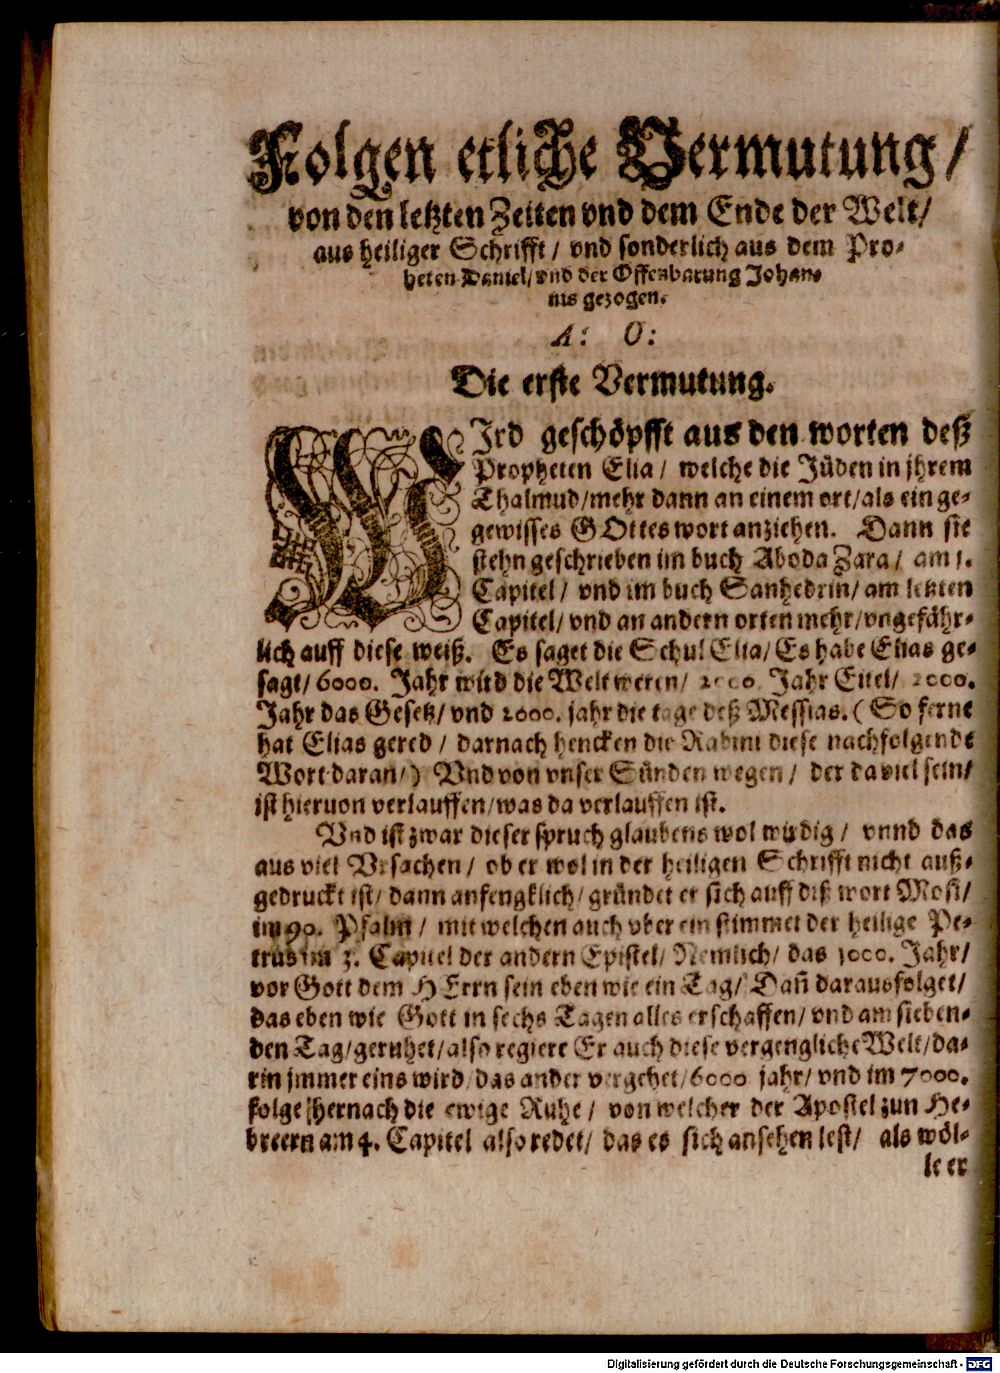 Folgen etliche Vermutung/
von den letzten Zeiten vnd dem Ende der Welt/
aus heiliger Schrifft/ vnd sonderlich aus dem Pro-
heten Daniel/ vnd der Offenbarung Johan-
nis gezogen.
A: O:
Die erste Vermutung.
WJrd geschöpfft aus den worten deß
Propheten Elia/ welche die Jüden in jhrem
Thalmud/ mehr dann an einem ort/ als ein ge-
gewisses GOttes wort anziehen. Dann sie
stehn geschrieben im buch Aboda Zara/ am 1.
Capitel/ vnd im buch Sanhedrin/ am letzten
Capitel/ vnd an andern orten mehr/ vngefähr-
lich auff diese weiß. Es saget die Schul Elia/ Es habe Elias ge-
sagt/ 6000. Jahr wird die Welt weren/ 2000. Jahr Eitel/ 2000.
Jahr das Gesetz/ vnd 2000. jahr die tage deß Messias. (So ferne
hat Elias gered/ darnach hencken die Rabini diese nachfolgende
Wort daran/) Vnd von vnser Sünden wegen/ der da viel sein/
ist hieruon verlauffen/ was da verlauffen ist.
Vnd ist zwar dieser spruch glaubens wol wirdig/ vnnd das
aus viel Vrsachen/ ob er wol in der heiligen Schrifft nicht auß-
gedruckt ist/ dann anfengklich/ gründet er sich auff diß wort Mosi/
im 90. Psalm/ mit welchen auch vber ein stimmet der heilige Pe-
trus im 3. Capitel der andern Epistel/ Nemlich/ das 1000. Jahr/
vor Gott dem HErrn sein eben wie ein Tag/ Dañ daraus folget/
das eben wie Gott in sechs Tagen alles erschaffen/ vnd am sieben-
den Tag/ geruhet/ also regiere Er auch diese vergengliche Welt/ da-
rin jmmer eins wird/ das ander vergehet/ 6000 jahr/ vnd im 7000.
folge hernach die ewige Ruhe/ von welcher der Apostel zun He-
breern am 4. Capitel also redet/ das es sich ansehen lest/ als wöl-
le er
Digitalisierung gefördert durch die Deutsche Forschungsgemeinschaft - DFG